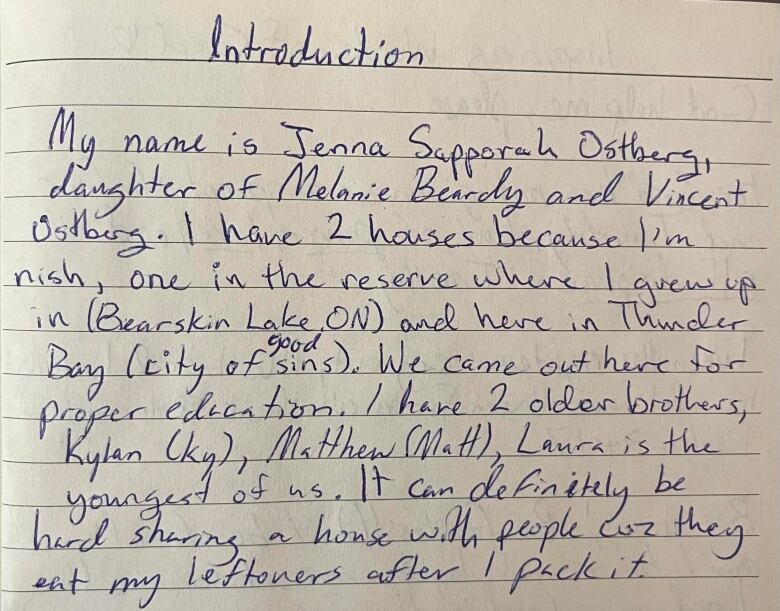 Introduction
My name is Jenna Sapporah Ostberg,
daughter of Melanie Beardy and Vincent
Ostberg. I have 2 houses because I'm
nish, one in the reserve where I grew up
in (Bearskin Lake, ON) and here in Thunder
Bay (city of good sins). We came out here for
proper education. I have 2 older brothers,
Kylan (Ky), Matthew (Matt), Laura is the
youngest of us. It can definitely be
hard sharing a house with people cuz they
eat my leftovers after I pack it.